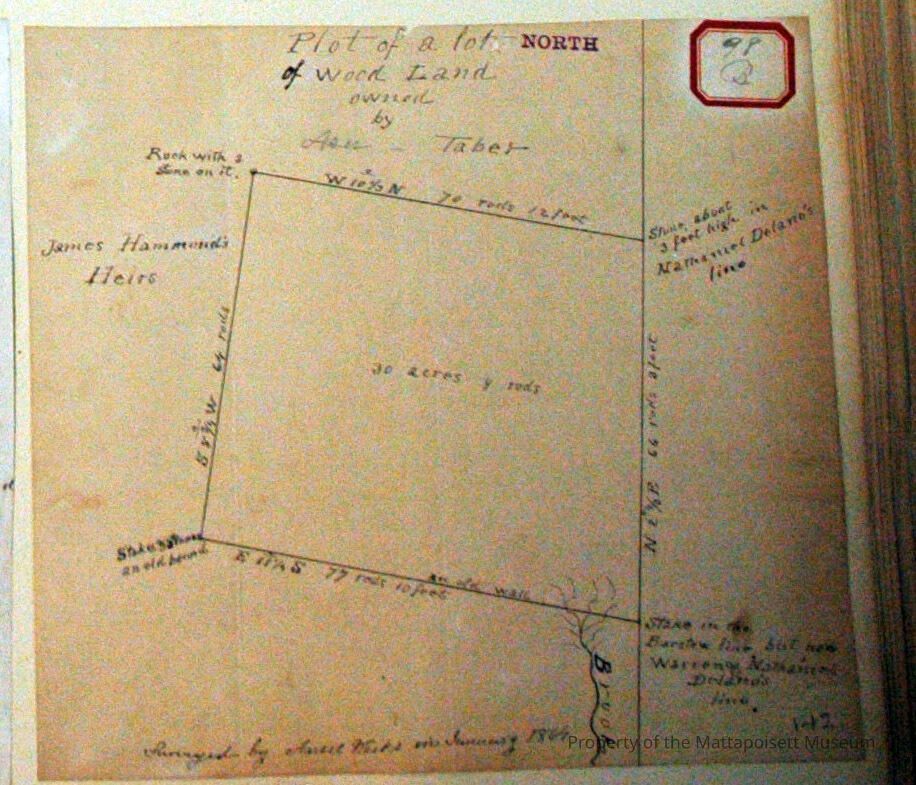 Plot of a lot NORTH
of Wood Land
owned
by
Asa - Taber
98
B
Rock with a
stone on it.
W 10⅔ N 70 rods 12 feet
Stone about
3 feet high in
Nathaniel Delano's
line
James Hammond's
Heirs
64 rods
30 acres 9 rods
N 2⅓ E 66 rods 8 feet
Stake & Stone
an old bound
E 11¼ S 77 rods 10 feet
an old wall
Stake in the
Barstow line but now
Warren Nathaniel
Delano's
line.
Brook
142
Surveyed by Ansel Weeks in January
Property of the Mattapoisett Museum